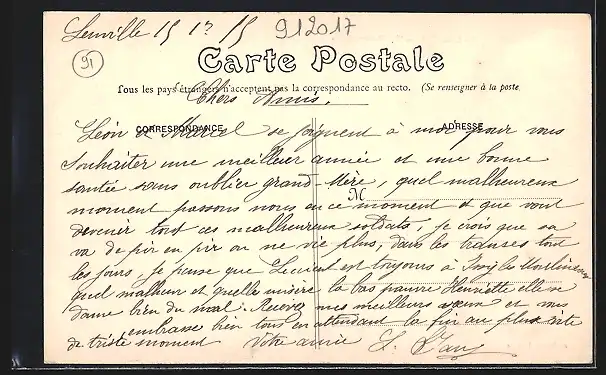 Leuville 15 1r 15
912017
91
Carte Postale
Tous les pays étrangers n'acceptent pas la correspondance au recto. (Se renseigner à la poste.
Chers Amis,
CORRESPONDANCE
ADRESSE
Léon et Marcel se joignent à moi pour vous
souhaiter une meilleur année et une bonne
santée sans oublier grand-Mère, quel malheureux
M
moment passons nous en ce moment et que vont
devenir tout ces malheureux soldats, je crois que sa
va de pir en pir on ne vie plus, dans les transes tout
les jours, je pense que est toujours à Ivry les Moulineaux
quel malheur et quelle misère la bas pauvre Henriette elle se
donne bien du mal. Recevez mes meilleurs vœux et vous
embrasse bien tous en attendant la fin au plus vite
de triste moment Votre amie L.